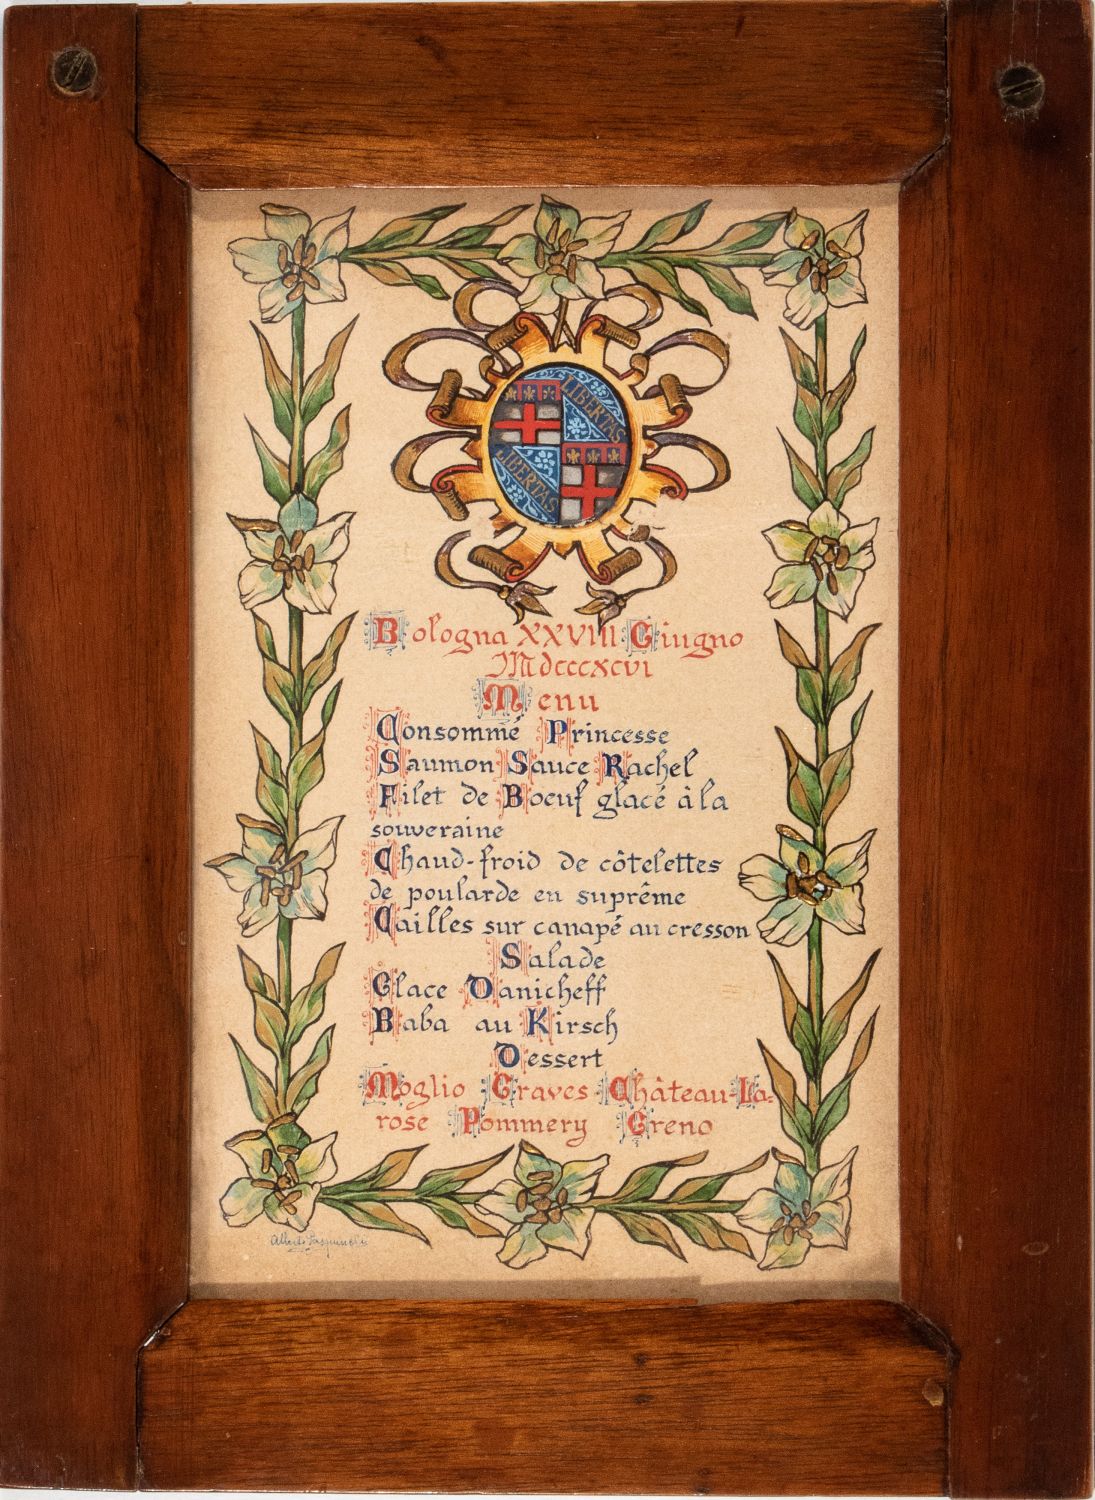 LIBERTAS
LIBERTAS
Bologna XXVIII Giugno
Mdcccxcvi
Menu
Consommé Princesse
Saumon Sauce Rachel
Filet de Boeuf glacé à la
souveraine
Chaud-froid de côtelettes
de poularde en suprême
Cailles sur canapé au cresson
Salade
Glace Danicheff
Baba au Kirsch
Dessert
Moglio Graves Château-La=
rose Pommery Greno
Alberto Pasquinelli